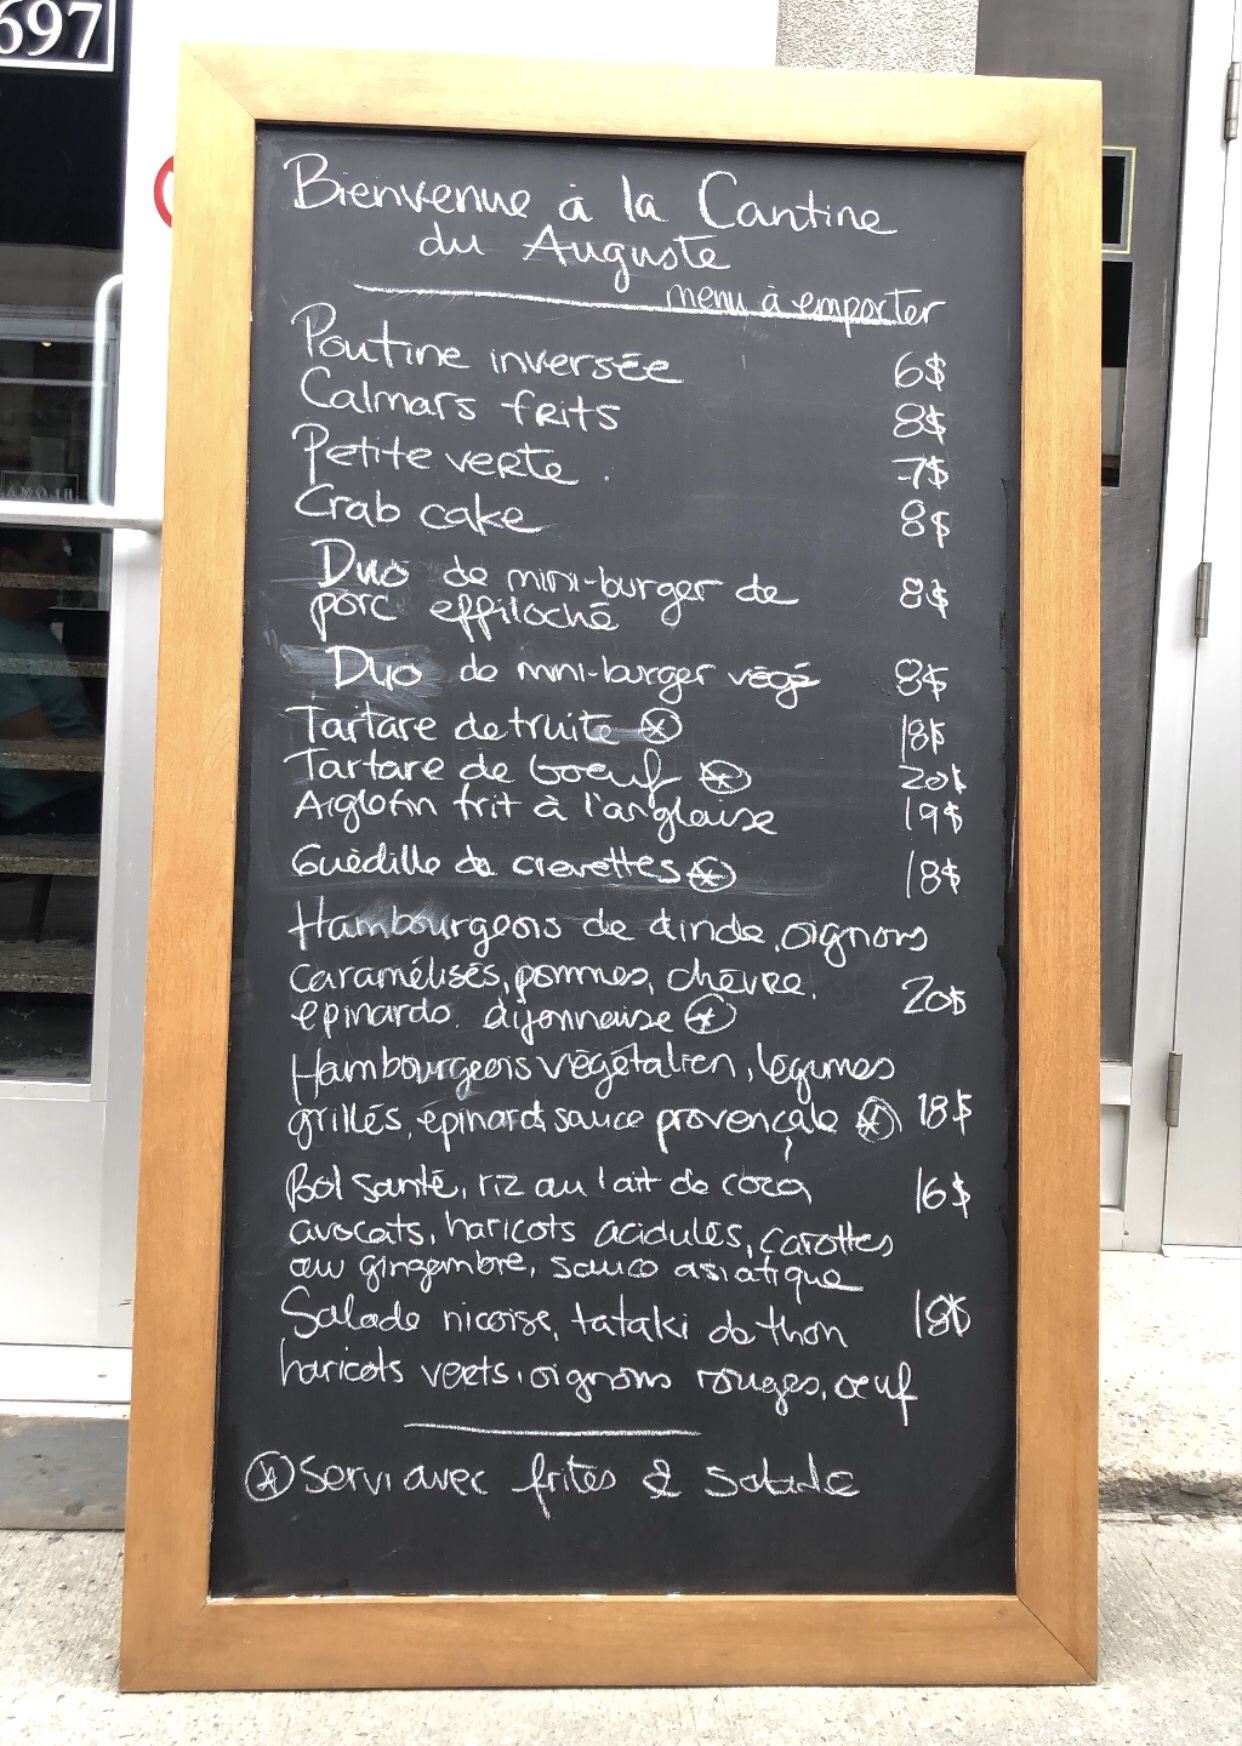 697
Bienvenue à la Cantine
du Auguste
menu à emporter
Poutine inversée 6$
Calmars frits 8$
Petite verte. 7$
Crab cake 8$
Duo de mini-burger de
porc effiloché 8$
Duo de mini-burger végé 8$
Tartare de truite ⊛ 18$
Tartare de boeuf ⊛ 20$
Aiglefin frit à l'anglaise 19$
Guédille de crevettes ⊛ 18$
Hambourgeois de dinde, oignons
caramélisés, pommes, chèvre,
épinards, dijonnaise ⊛ 20$
Hambourgeois végétalien, légumes
grillés, épinards sauce provençale ⊛ 18$
Bol santé, riz au lait de coco, 16$
avocats, haricots acidulés, carottes
au gingembre, sauce asiatique
Salade nicoise, tataki de thon 18$
haricots verts, oignons rouges, œuf
⊛ Servi avec frites & salade